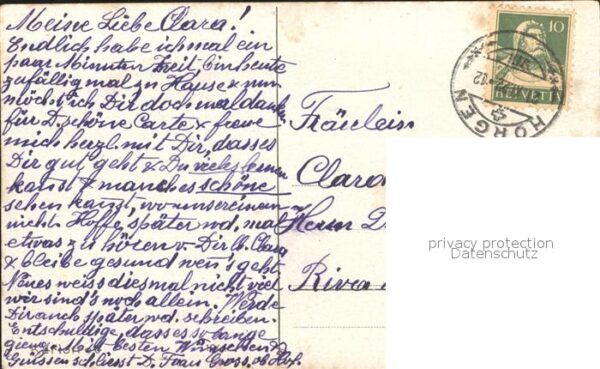 Meine Liebe Clara!
Endlich habe ich mal ein
paar Minuten Zeit, bin heute
zufällig mal zu Hause & nun
möcht ich Dir doch mal danken
für D. schöne Carte & freue
mich herzl. mit Dir, dass es
Dir gut geht & Du vieles lernen
kannst & manches schöne
sehen kannst, wo unsereinem
nicht. Hoffe, später wd. mal
etwas zu hören v. Dir lb. Clara
& bleibe gesund wen's geht
Neues weiss diesmal nicht viel
wir sind's noch allein. Werde
Dir auch später wd. schreiben.
Entschuldige, dass es so lange
gieng. Mit besten Wünschen &
Grüssen schliesst D. Frau Gross. ob Hof.
Fräulein
Clara
Herrn D
Riva
10
HELVETIA
HORGEN
12
privacy protection
Datenschutz